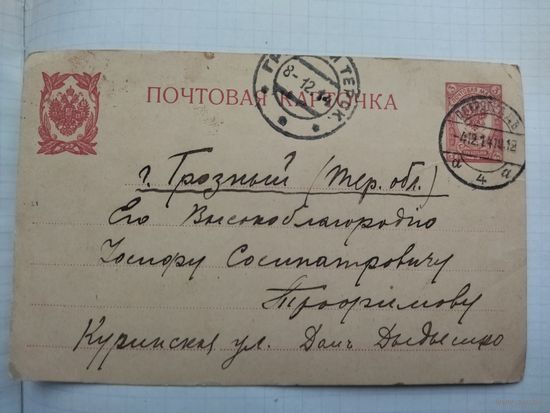 ПОЧТОВАЯ КАРТОЧКА
8-12.14
ТЕРСК.
4.12.14
4
a a
г. Грозный (Тер. обл.)
Его Высокоблагородию
Иосифу Сосипатровичу
Трофимову
Куринская ул. Домъ